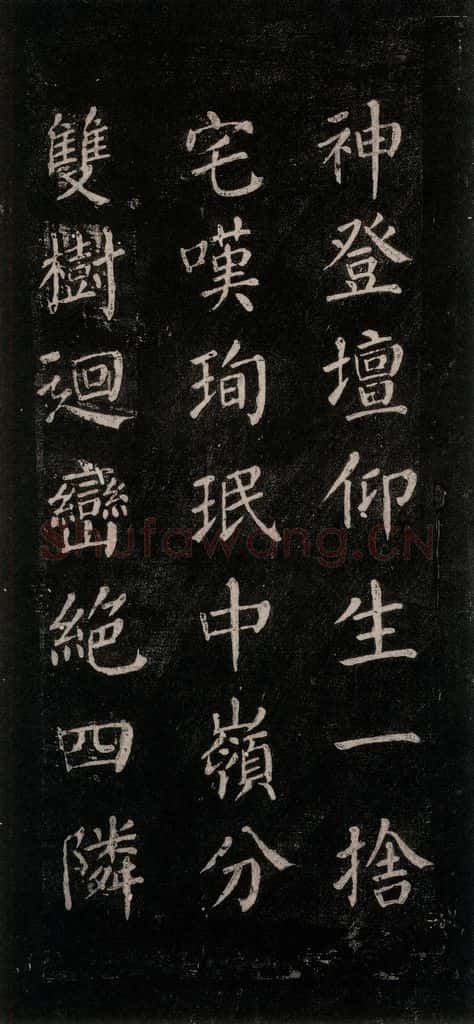 神登壇仰生一捨
宅嘆珣珉中嶺分
雙樹迴巒絶四隣
Shufawang.CN